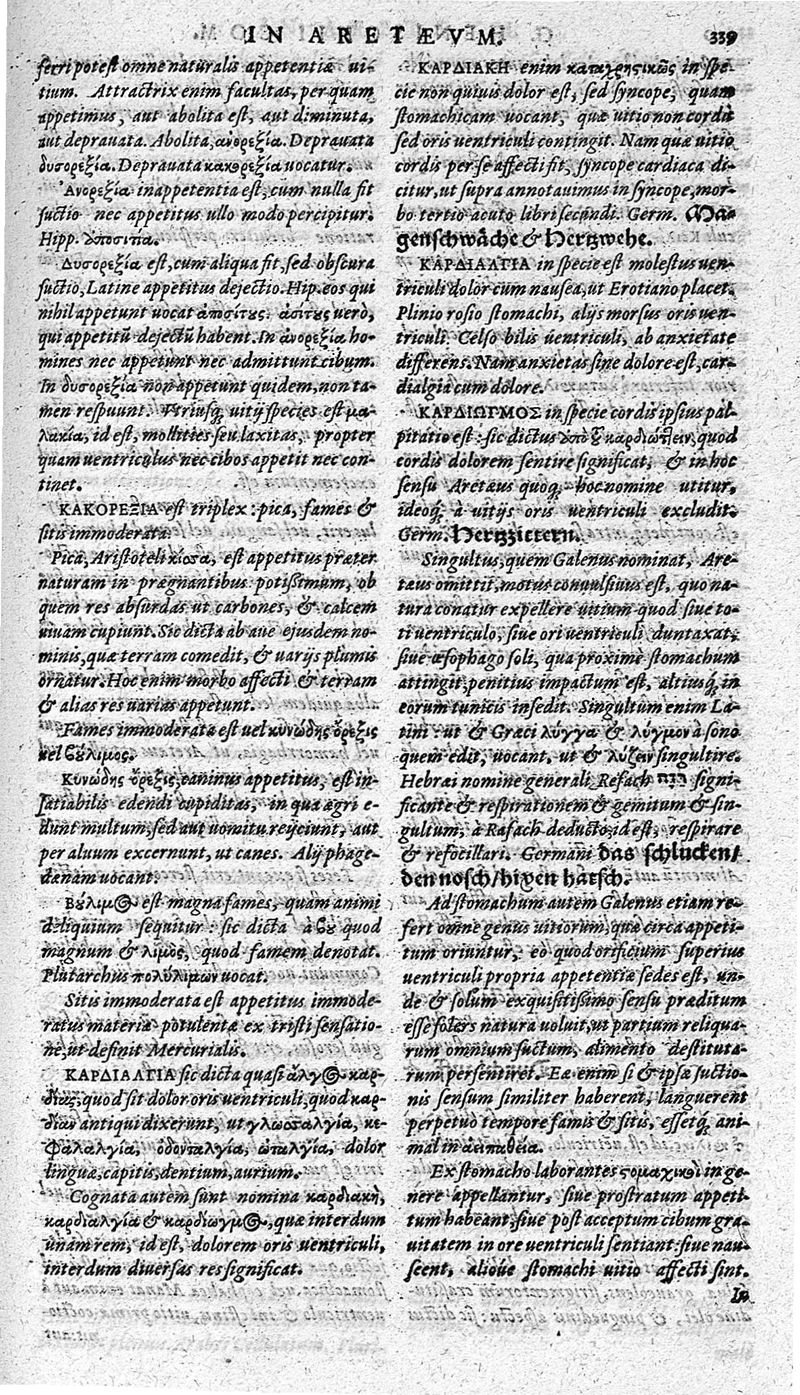 IN ARETÆVM.
339
ferri potest omne naturalis appetentiæ ui-
tium. Attractrix enim facultas, per quam
appetimus, aut abolita est, aut diminuta,
aut deprauata. Abolita, ἀνορεξία. Deprauata
δυσορεξία. Deprauata κακορεξία uocatur.
Ἀνορεξία inappetentia est, cum nulla fit
suctio nec appetitus ullo modo percipitur.
Hipp. ἀποσιτία.
Δυσορεξία est, cum aliqua fit, sed obscura
suctio, Latine appetitus dejectio. Hip. eos qui
nihil appetunt vocat ἀποσίτους. ἀσίτους uerò,
qui appetitũ dejectũ habent. In ἀνορεξία ho-
mines nec appetunt nec admittunt cibum.
In δυσορεξία non appetunt quidem, non ta-
men respuunt. Vtriusq; uitij species est μα-
λακία, id est, mollities seu laxitas, propter
quam uentriculus nec cibos appetit nec con-
tinet.
ΚΑΚΟΡΕΞΙΑ est triplex: pica, fames &
sitis immoderata.
Pica, Aristoteli κίσσα, est appetitus præter
naturam in prægnantibus potißimum, ob
quem res absurdas ut carbones, & calcem
uiuam cupiunt. Sic dicta ab aue ejusdem no-
minis, quæ terram comedit, & varijs plumis
ornatur. Hoc enim morbo affecti & terram
& alias res varias appetunt.
Fames immoderata est uel κυνώδης ὄρεξις
uel βούλιμος.
Κυνώδης ὄρεξις, caninus appetitus, est in-
satiabilis edendi cupiditas, in qua ægri e-
dunt multum, sed aut uomitu rejiciunt, aut
per aluum excernunt, ut canes. Alij phage-
dænam uocant.
Βούλιμος est magna fames, quam animi
deliquium sequitur: sic dicta à βου quod
magnum & λιμός, quod famem denotat.
Plutarchus πολύλιμον vocat.
Sitis immoderata est appetitus immode-
ratus materiæ potulentæ ex tristi sensatio-
ne, ut definit Mercurialis.
ΚΑΡΔΙΑΛΓΙΑ sic dicta quasi ἄλγος καρ-
δίας, quod sit dolor oris uentriculi, quod καρ-
δίαν antiqui dixerunt, ut γλωσσαλγία, κε-
φαλαλγία, ὀδονταλγία, ὠταλγία, dolor
linguæ, capitis, dentium, aurium.
Cognata autem sunt nomina καρδιακὴ,
καρδιαλγία & καρδιωγμος, quæ interdum
unam rem, id est, dolorem oris uentriculi,
interdum diuersas res significat.
ΚΑΡΔΙΑΚΗ enim καταχρηστικῶς in spe-
cie non quiuis dolor est, sed syncope, quam
stomachicam uocant, quæ uitio non cordis
sed oris uentriculi contingit. Nam quæ uitio
cordis per se affecti fit, syncope cardiaca di-
citur, ut supra annotauimus in syncope, mor-
bo tertio acuto libri secundi. Germ. Ma-
genschwäche & Hertzwehe.
ΚΑΡΔΙΑΛΓΙΑ in specie est molestus uen-
triculi dolor cum nausea, ut Erotiano placet.
Plinio rosio stomachi, alijs morsus oris uen-
triculi. Celso bilis uentriculi, ab anxietate
differens. Nam anxietas sine dolore est, car-
dialgia cum dolore.
ΚΑΡΔΙΩΓΜΟΣ in specie cordis ipsius pal-
pitatio est: sic dictus ἀπὸ τοῦ καρδιώττειν, quod
cordis dolorem sentire significat, & in hoc
sensu Aretæus quoq; hoc nomine utitur,
ideoq́; à uitijs oris uentriculi excludit.
Germ. Hertzzittern.
Singultus, quem Galenus nominat, Are-
tæus omittit, motus conuulsiuus est, quo na-
tura conatur expellere uitium quod siue to-
ti uentriculo, siue ori uentriculi duntaxat,
siue œsophago soli, qua proximè stomachum
attingit, penitius impactum est, altiusq́; in
eorum tunicis insedit. Singultum enim La-
tini ut & Græci λύγγα & λύγμον à sono
quem edit, uocant, ut & λύζειν singultire.
Hebræi nomine generali Refach signi-
ficante & respirationem & gemitum & sin-
gultum, à Rafach deducto, id est, respirare
& refocillari. Germani das schlucken/
den nosch/hixen hätsch.
Ad stomachum autem Galenus etiam re-
fert omne genus uitiorum, quæ circa appeti-
tum oriuntur, eò quod orificium superius
ventriculi propria appetentiæ sedes est, un-
de & solum exquisitissimo sensu præditum
esse solers natura voluit, ut partium reliqua-
rum omnium suctum, alimento destituta-
rum persentiret. Eæ enim si & ipsæ suctio-
nis sensum similiter haberent, languerent
perpetuò tempore famis & sitis, essetq́; ani-
mal in ἀειπαθεία.
Ex stomacho laborantes στομαχικοὶ in ge-
nere appellantur, siue prostratum appeti-
tum habeant, siue post acceptum cibum gra-
uitatem in ore uentriculi sentiant: siue nau-
seent, alioue stomachi uitio affecti sint.
In